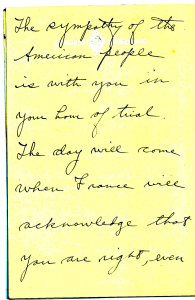 The sympathy of the
American people
is with you in
your hour of trial.
The day will come
when France will
acknowledge that
you are right, even